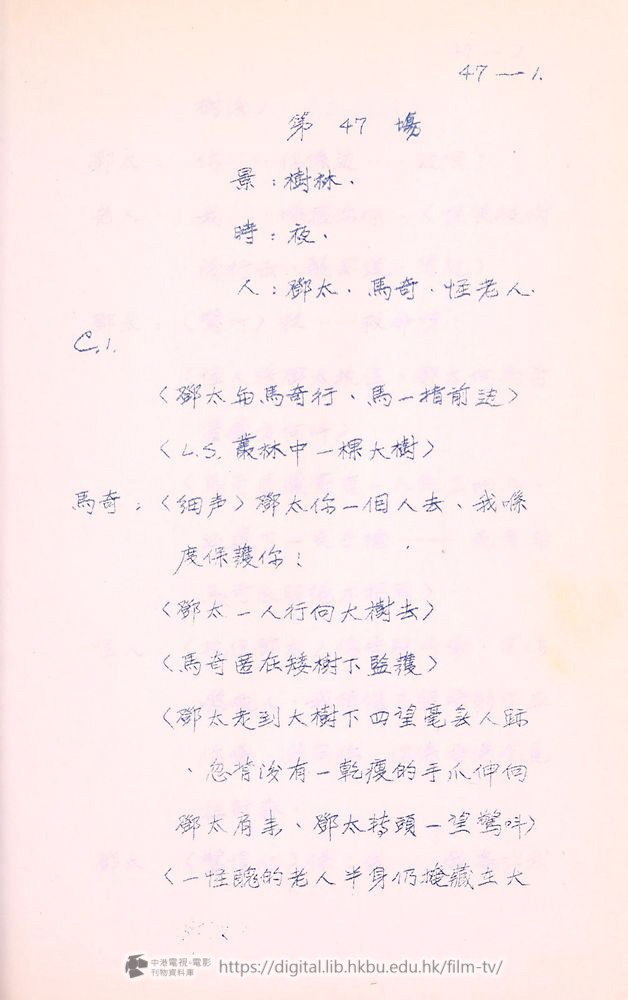 47—1.
第 47 場
景：樹林．
時：夜．
人：鄧太．馬奇．怪老人．
C.1.
〈鄧太与馬奇行、馬一指前边〉
〈L.S. 叢林中一棵大樹〉
馬奇：〈細声〉鄧太你一個人去、我喺
度保護你！
〈鄧太一人行向大樹去〉
〈馬奇匿在矮樹下監護〉
〈鄧太走到大樹下四望毫無人跡
、忽背後有一乾瘦的手爪伸向
鄧太肩来、鄧太轉頭一望驚叫〉
〈一怪醜的老人半身仍掩藏在大
中港電視·電影
刊物資料庫
https://digital.lib.hkbu.edu.hk/film-tv/